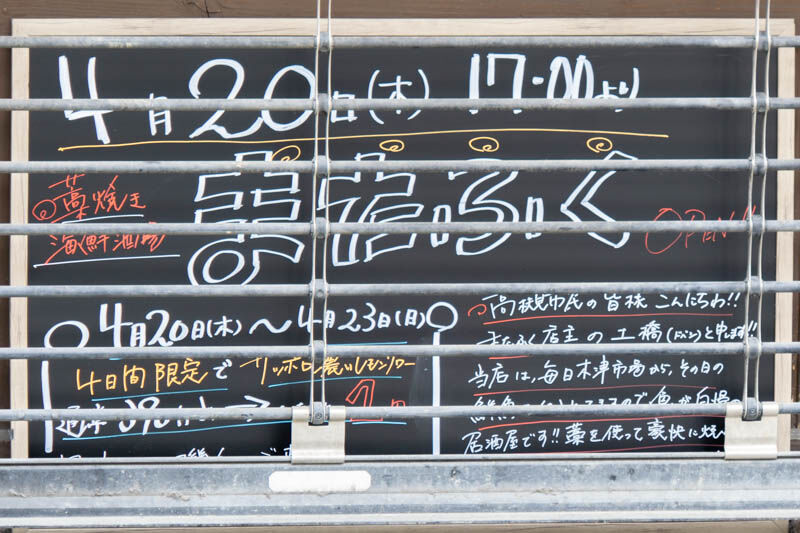 4月20日(木) 17:00より
藁焼き
海鮮酒場
きたふく
OPEN!!
4月20日(木)～4月23日(日)
4日間限定で
サッポロ濃いレモンサワー
通常390
1円
高槻市民の皆様こんにちわ!!
きたふく店主の土橋(ドバシ)と申します!!
当店は、毎日木津市場から、その日の
ので魚が自慢の
居酒屋です!!藁を使って豪快に焼